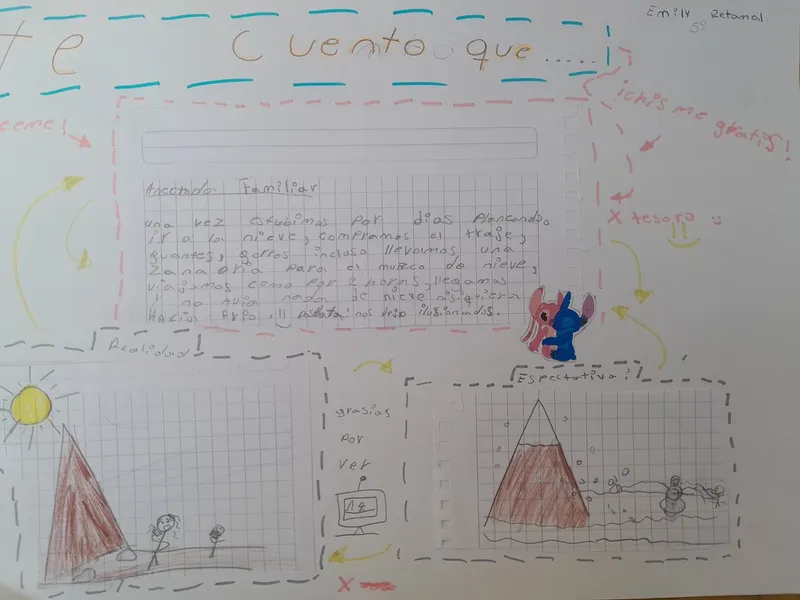 Emily Retamal
5º
te Cuento que.....
eeme!
ichis me gratis!
Anectada Familiar
una vez estubimos por dias planeando
ir a la nieve, compramos el traje,
guantes, gorros incluso llevamos una
zana oria para el muñeco de nieve,
viajamos como por 2 horas, llegamos
y no avia nada de nieve nisiquiera
Hacia frio
nos dejo ilusionados.
X tesoro
Realidad
grasias
por
ver
Espectativa:
X